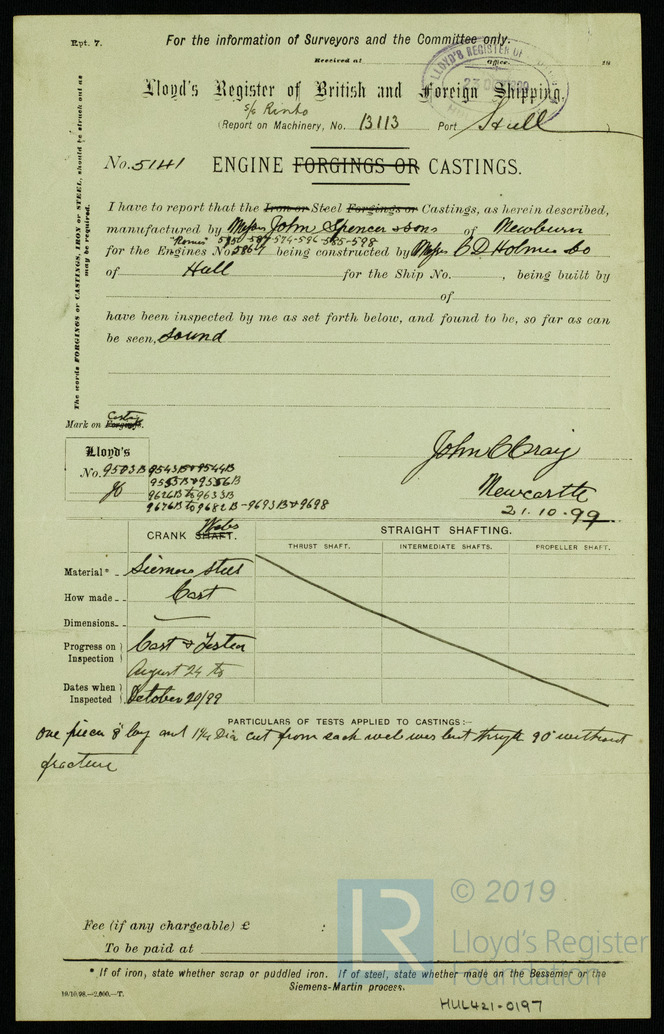 Rpt. 7.
For the information of Surveyors and the Committee only.
Received at Office. 18
LLOYD'S REGISTER OF
Lloyd's Register of British and Foreign Shipping.
S/S Rinto
(Report on Machinery, No. 13113 Port Hull )
No. 5141 ENGINE FORGINGS OR CASTINGS.
The words FORGINGS or CASTINGS, IRON or STEEL, should be struck out as may be required.
I have to report that the Iron or Steel Forgings or Castings, as herein described,
manufactured by Messrs John Spencer & Sons of Newburn
for the Engines No. being constructed by Messrs C D Holmes & Co
of Hull for the Ship No. , being built by
of
have been inspected by me as set forth below, and found to be, so far as can
be seen, sound
Mark on Forgings.
Casting
Lloyd's
No. 9503B 9543B & 9544B
9555B & 9556B
9626B to 9633B
9676B to 9682B - 9693B & 9698
Newcastle
21.10.99
CRANK SHAFT.
Webs
STRAIGHT SHAFTING.
THRUST SHAFT. INTERMEDIATE SHAFTS. PROPELLER SHAFT.
Material* Siemens Steel
How made Cast
Dimensions
Progress on Inspection Cast & Tested
August 24 to
Dates when Inspected October 20/99
PARTICULARS OF TESTS APPLIED TO CASTINGS:—
One piece 8" long and 1¼ Dia cut from each web was bent through 90° without
fracture
Fee (if any chargeable) £ :
To be paid at
* If of iron, state whether scrap or puddled iron. If of steel, state whether made on the Bessemer or the
Siemens-Martin process.
10/10.98.—2,000.—T.
HUL421-0197
LR
© 2019
Lloyd's Register
Foundation